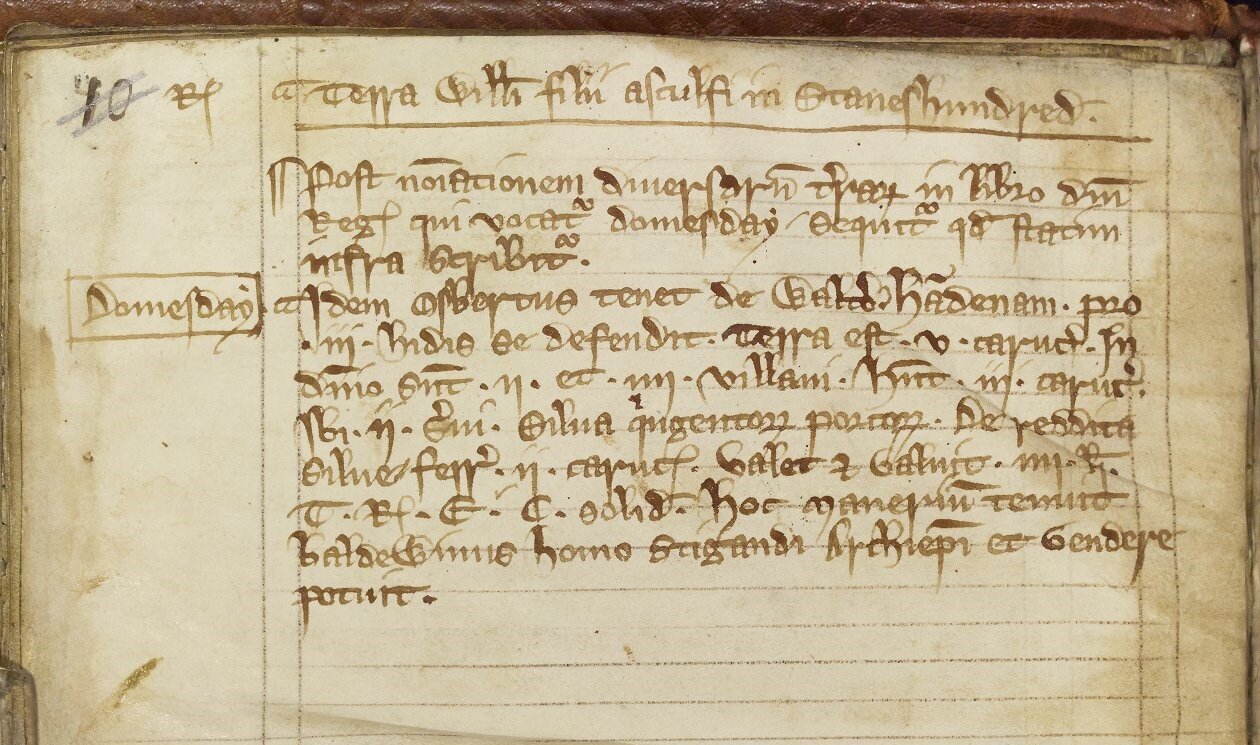 10 R
Terra Willi filii asculfi in Staneshundred.
Post noiationem diuersarū t'rar in libro dni
Reg qui vocat domesday sequit qd statim
infra scribit.
Domesday Idem Osbertus tenet de Walto hādenam. pro
.iii. hidis se defendit. Terra est. v. caruc. In
dnio sūt. ii. et. iiii. villani. hnt. iii. caruc.
Ibi. ii. s'ui. Silua qingentor porcor. De reddita
silue ferr. ii. caruc. valet & valuit. iiii. li.
T. R. E. C. solid. hoc maneriū tenuit
baldewinus homo Stigandi Archiepi et vendere
potuit.